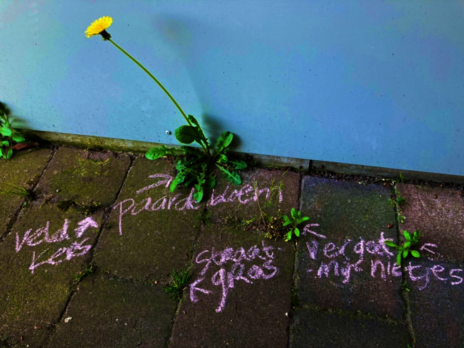 paardebloem
veld
kers
straat
gras
vergeet
mij nietjes